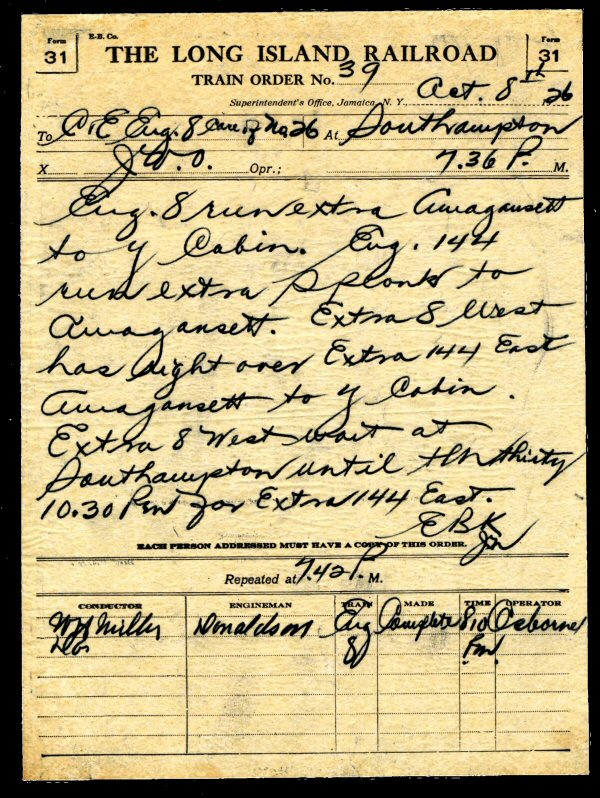 Form 31
E.-B. Co.
THE LONG ISLAND RAILROAD
Form 31
TRAIN ORDER No. 39
Oct. 8th
Superintendent's Office, Jamaica, N. Y., 1926
To C&E Eng. 8 Care of No. 26 At Southampton
X J.W.O. Opr.; 7.36 P. M.
Eng. 8 run extra Amagansett
to Y Cabin. Eng. 144
run extra Ponds to
Amagansett. Extra 8 West
has right over Extra 144 East
Amagansett to Y Cabin.
Extra 8 West wait at
Southampton until ten thirty
10.30 Pm for Extra 144 East.
EBK
EACH PERSON ADDRESSED MUST HAVE A COPY OF THIS ORDER.
Repeated at 7.42 P. M.
CONDUCTOR ENGINEMAN TRAIN MADE TIME OPERATOR
Miller Donaldson Eng Complete 8 10 Osborne
8 Pm